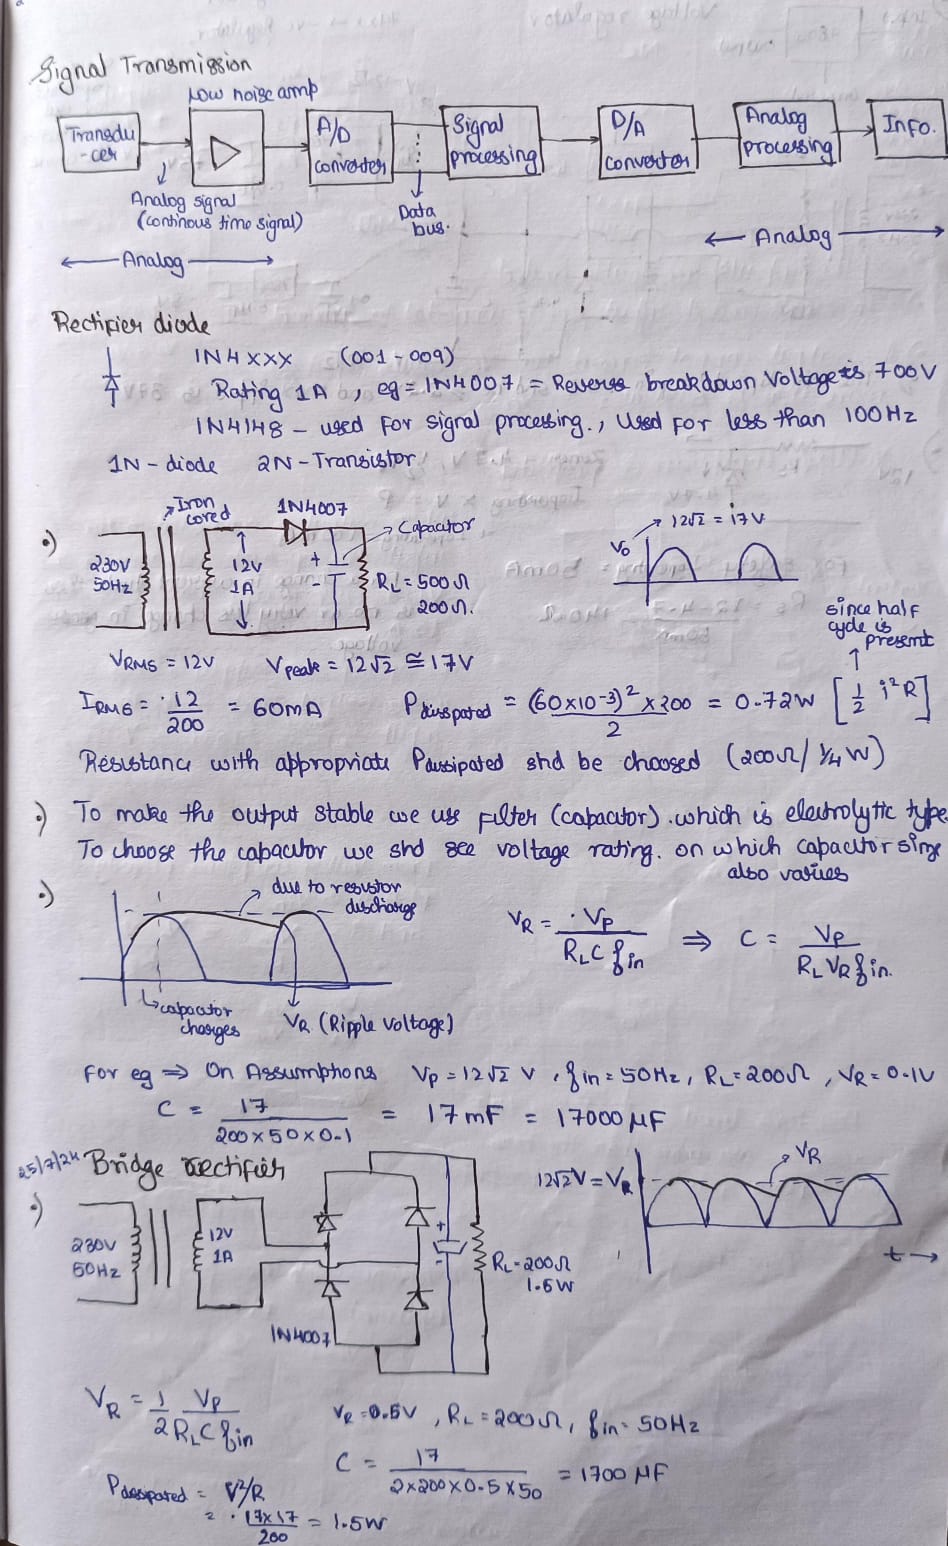 Signal Transmission
Low noise amp
Transdu
-cer
A/D
converter
Signal
processing
D/A
converter
Analog
processing
Info.
Analog signal
(continous time signal)
Data
bus.
Analog
Analog
Rectifier diode
1N4XXX (001-009)
Rating 1A, eg = 1N4007 = Reverse breakdown Voltage is 700V
1N4148 - used for signal processing., Used for less than 100Hz
1N - diode 2N - Transistor
Iron
cored
1N4007
Capacitor
230V
50Hz
12V
1A
+
-
RL = 500Ω
200Ω.
Vo
12√2 = 17V
since half
cycle is
present
VRMS = 12V Vpeak = 12√2 ≅ 17V
IRMS = 12/200 = 60mA Pdissipated = (60x10-3)² x 200 / 2 = 0.72W [1/2 i²R]
Resistance with appropriate Pdissipated shd be choosed (200Ω/ 1/4 W)
To make the output stable we use filter (capacitor). which is electrolytic type.
To choose the capacitor we shd see voltage rating. on which capacitor size
also varies
due to resistor
discharge
capacitor
charges
VR (Ripple voltage)
VR = Vp / RLC fin ⇒ C = Vp / RL VR fin.
For eg ⇒ On Assumptions Vp = 12√2 V, fin = 50Hz, RL = 200Ω, VR = 0.1V
C = 17 / 200x50x0.1 = 17mF = 17000 μF
25/7/24 Bridge rectifier
230V
50Hz
12V
1A
1N4007
+
-
RL = 200Ω
1.5W
12√2V = VR
VR
t →
VR = 1/2 Vp / RLC fin
VR = 0.5V, RL = 200Ω, fin = 50Hz
C = 17 / 2x200x0.5x50 = 1700 μF
Pdissipated = V²/R
= 17x17 / 200 = 1.5W